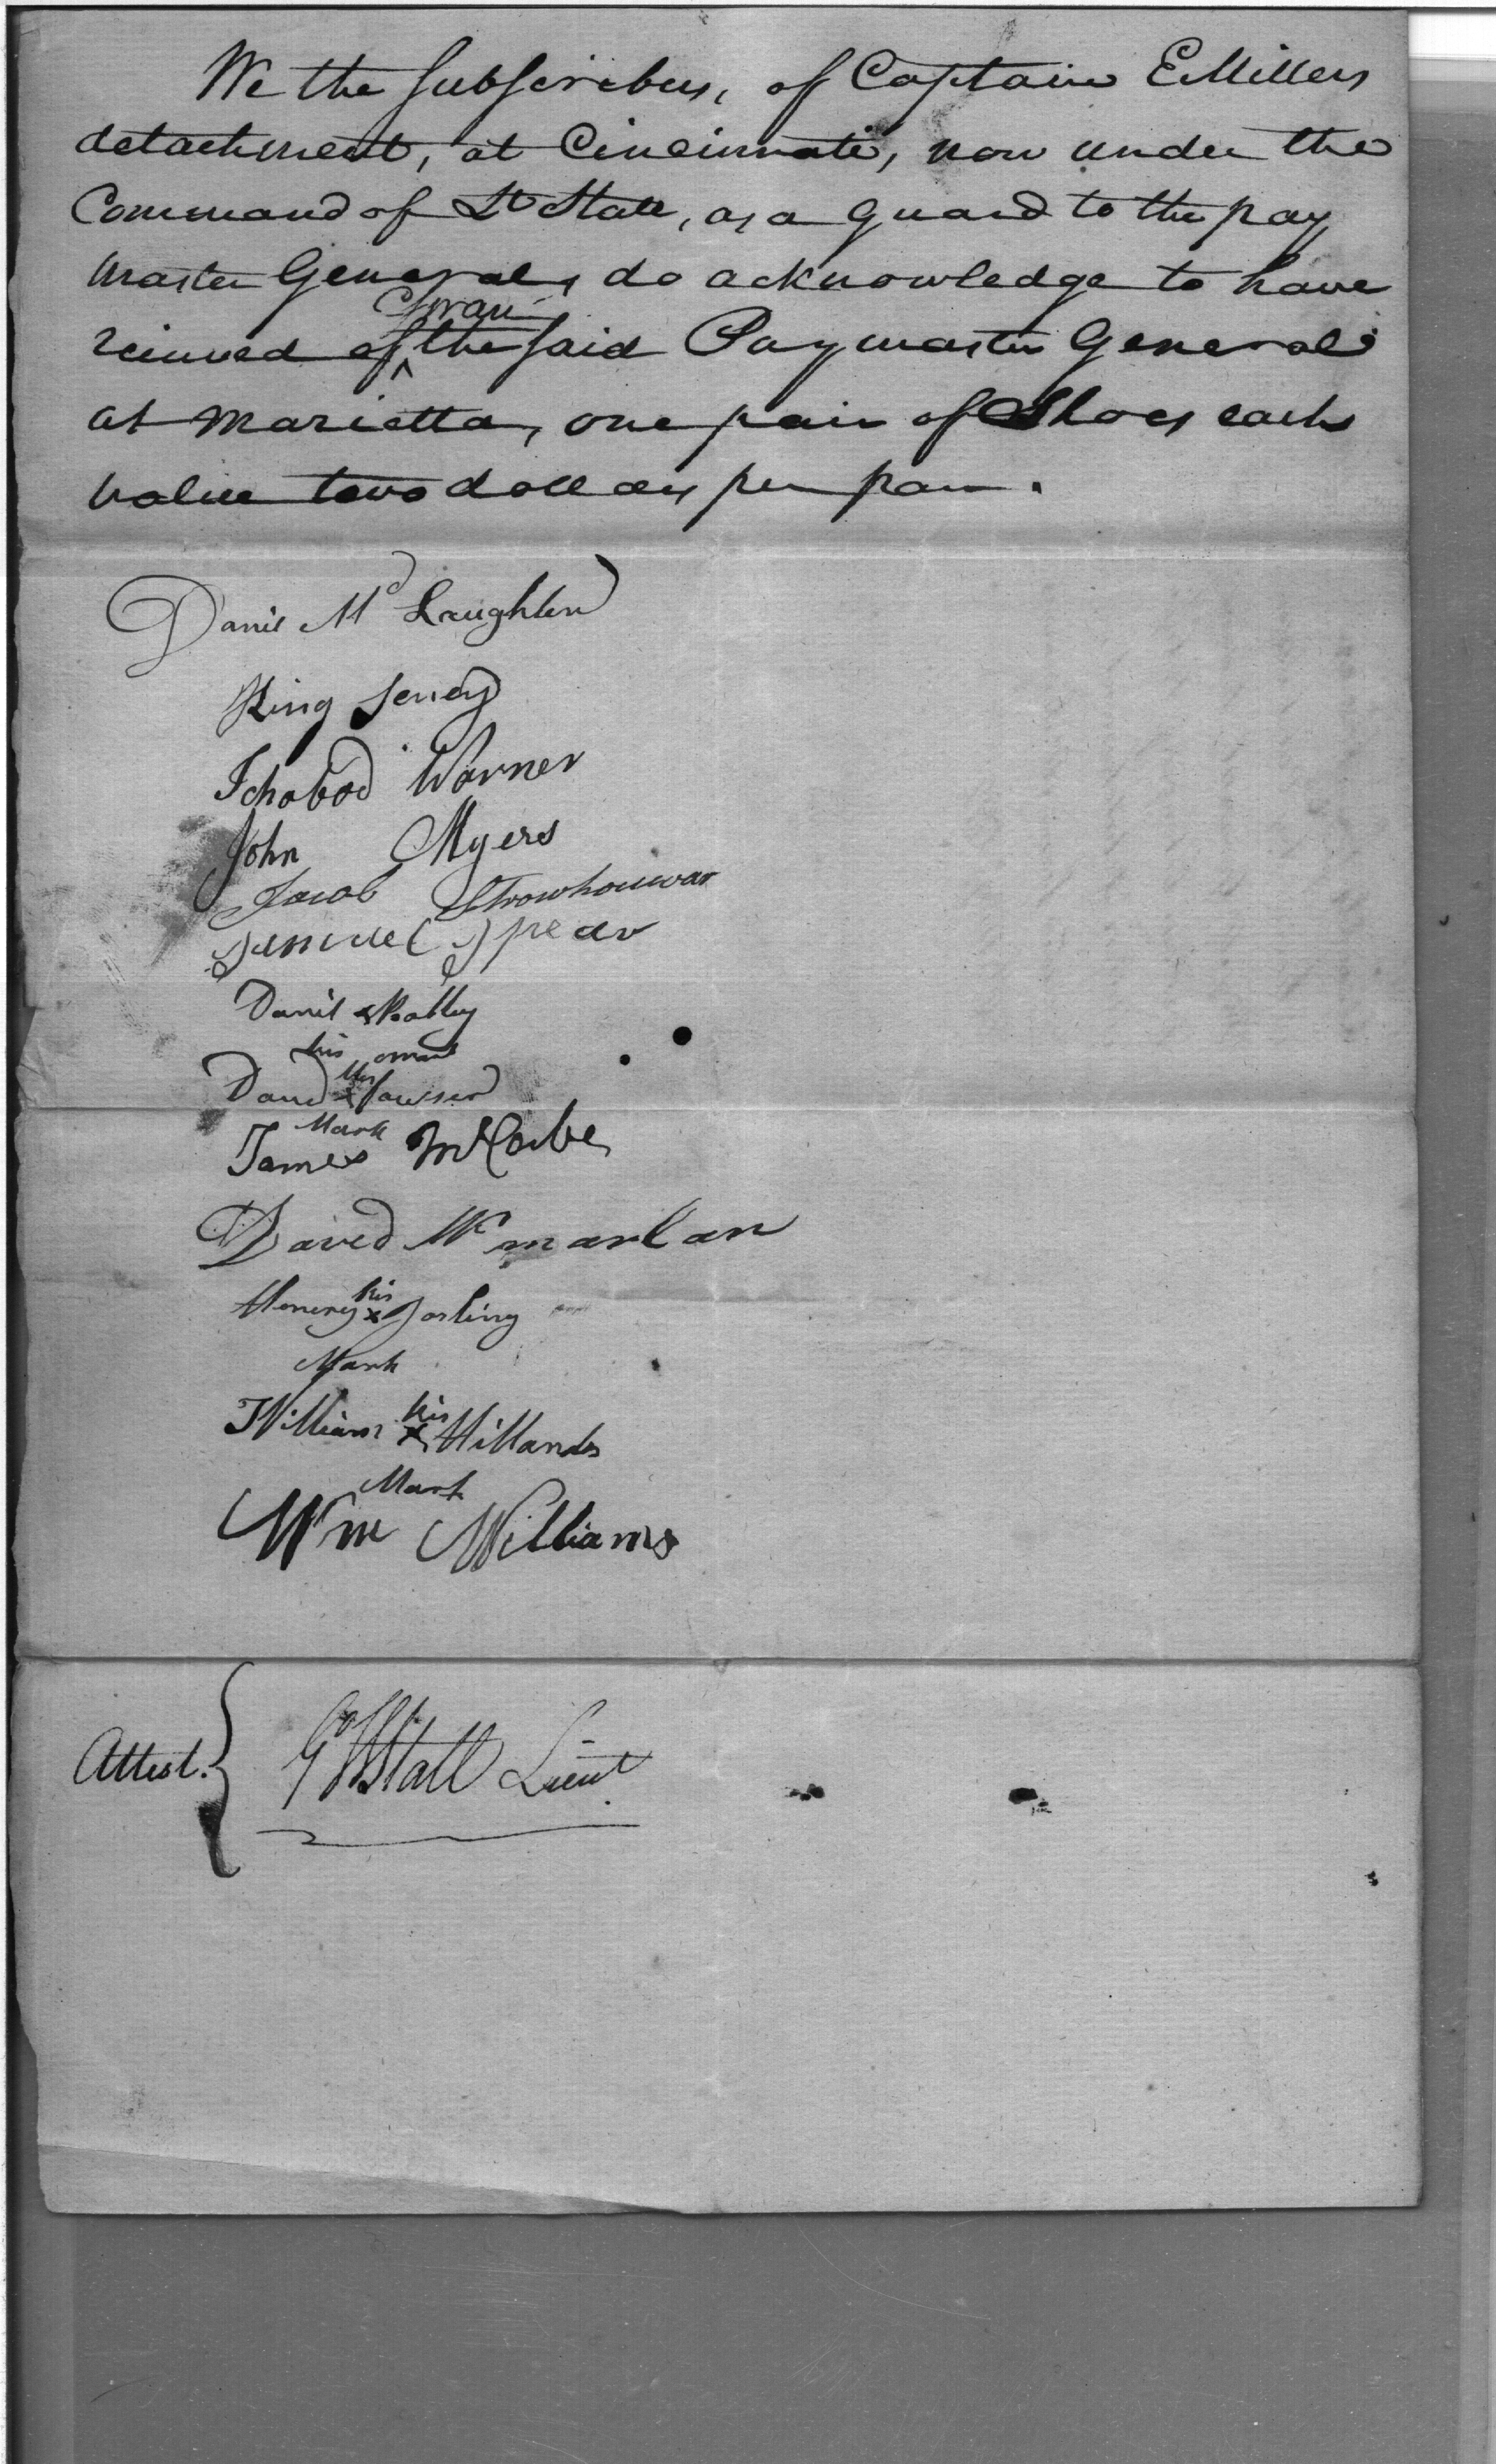 We the Subscribers, of Captain E Millers
detachment, at Cincinnati, now under the
Command of Lt Stall, as a guard to the pay
Master General, do acknowledge to have
Swan
received of the said Paymaster General
at Marietta, one pair of Shoes each
value two dollars per pair.
Danil Mc Laughlin
King
Ichobod Warner
John Myers
Jacob Strowhouwar
Samuel Spear
Danil
his mark
David
his
x
Mark
James McCabe
David Mc marlan
his
Henery x Dorling
Mark
his
William x Hillands
Mark
Wm Williams
Attest. G W Stall Lieut